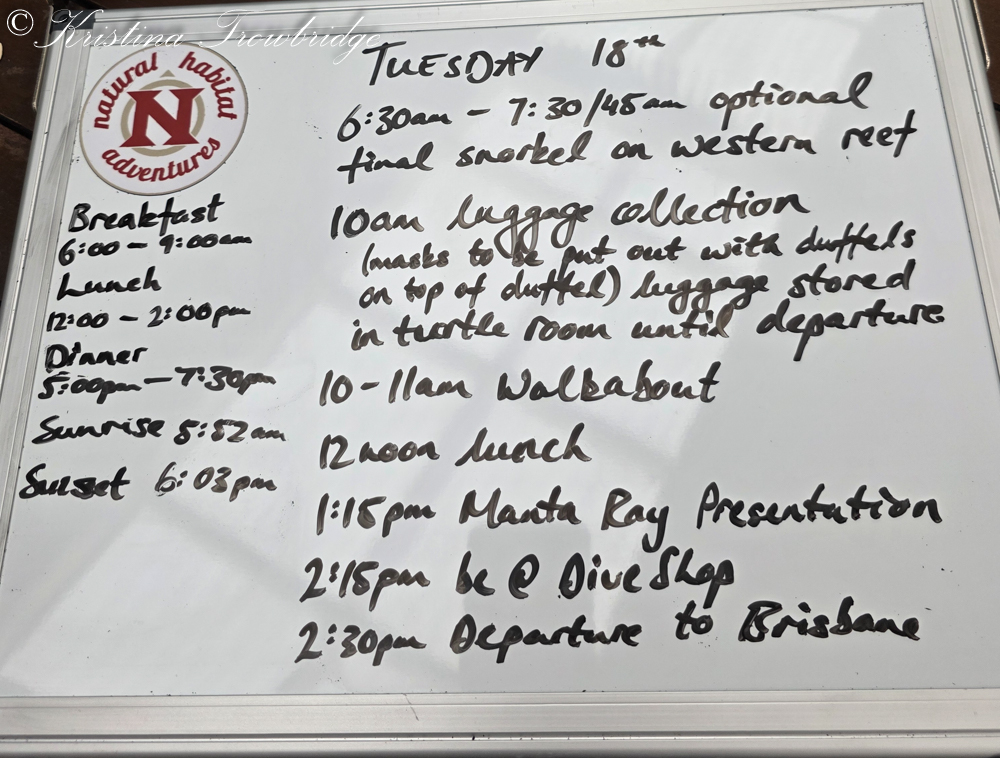 © Kristina Trowbridge
natural habitat
N
adventures
Breakfast
6:00 - 9:00am
Lunch
12:00 - 2:00pm
Dinner
5:00pm - 7:30pm
Sunrise 5:52am
Sunset 6:03pm
TUESDAY 18th
6:30am - 7:30/45am optional
final snorkel on western reef
10am luggage collection
(masks to be put out with duffels
on top of duffel) luggage stored
in turtle room until departure
10-11am Walkabout
12noon Lunch
1:15pm Manta Ray Presentation
2:15pm be @ Dive Shop
2:30pm Departure to Brisbane